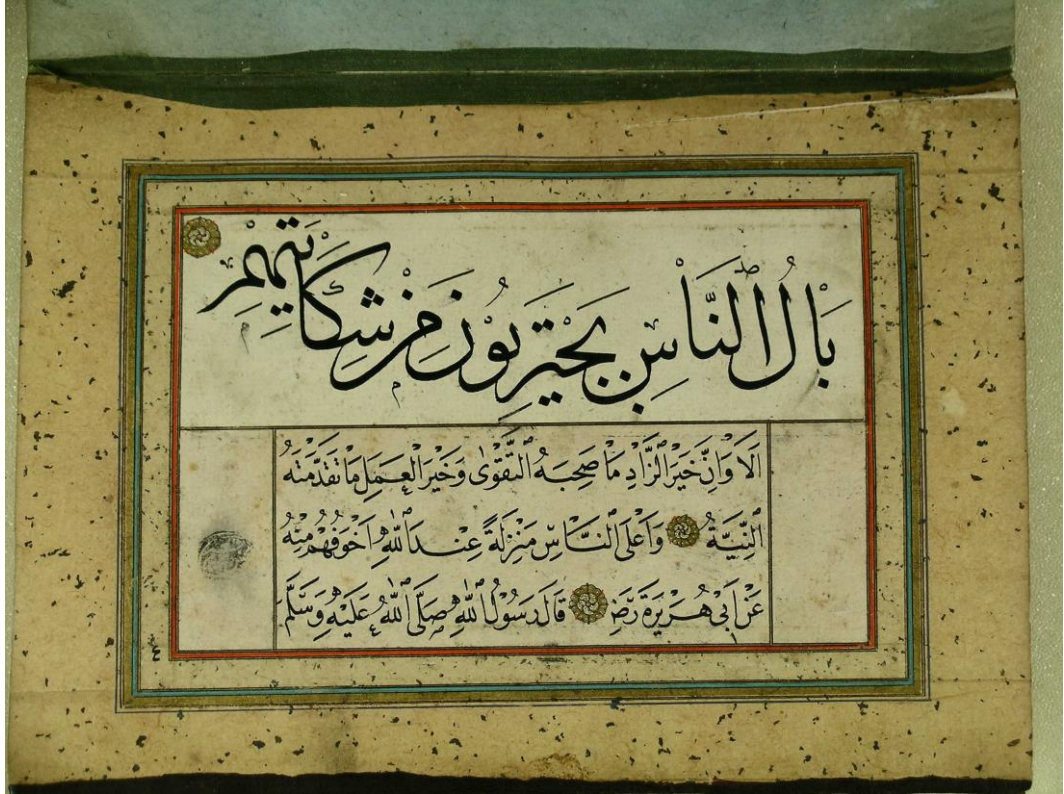 بَالُ النَّاسِ مِنْ
اَلَا وَاِنَّ خَيْرَ الزَّادِ مَا صَحِبَهُ التَّقْوٰى وَخَيْرَ الْعَمَلِ مَا تَقَدَّمَتْهُ
النِّيَّةُ وَاَعْلَى النَّاسِ مَنْزِلَةً عِنْدَ اللّٰهِ اَخْوَفُهُمْ مِنْهُ
عَنْ اَبِى هُرَيْرَةَ رَضِ قَالَ رَسُولُ اللّٰهِ صَلَّى اللّٰهُ عَلَيْهِ وَسَلَّمَ